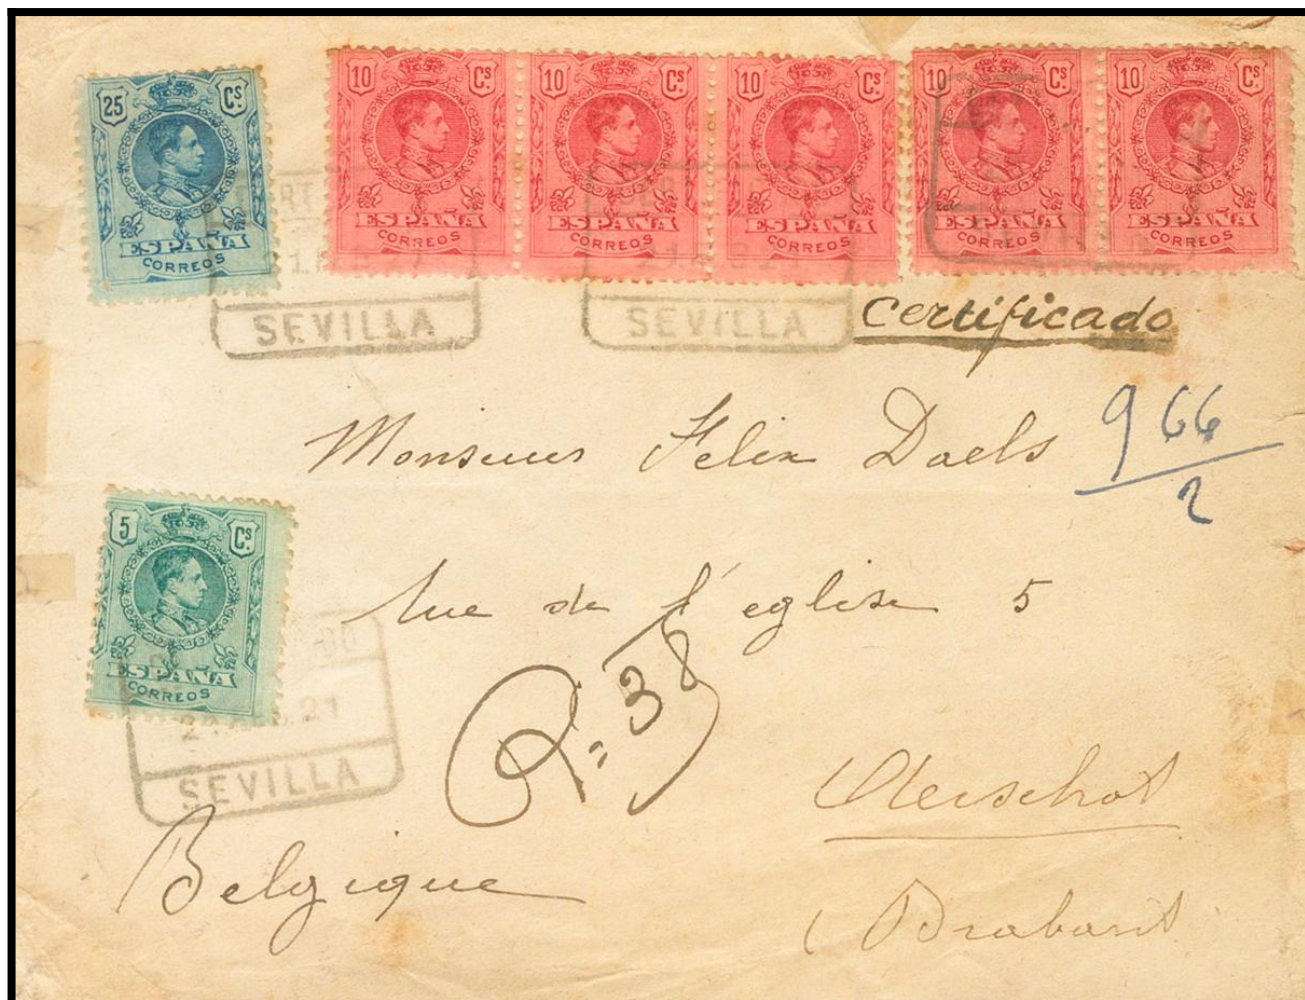 25 Cs.
ESPAÑA
CORREOS
10 Cs.
ESPAÑA
CORREOS
10 Cs.
ESPAÑA
CORREOS
10 Cs.
ESPAÑA
CORREOS
10 Cs.
ESPAÑA
CORREOS
10 Cs.
ESPAÑA
CORREOS
SEVILLA
SEVILLA
Certificado
Monsieur Felix Daels
966
2
5 Cs.
ESPAÑA
CORREOS
21
SEVILLA
Rue de l'église 5
R = 38
Aerschot
Belgique
Brabant